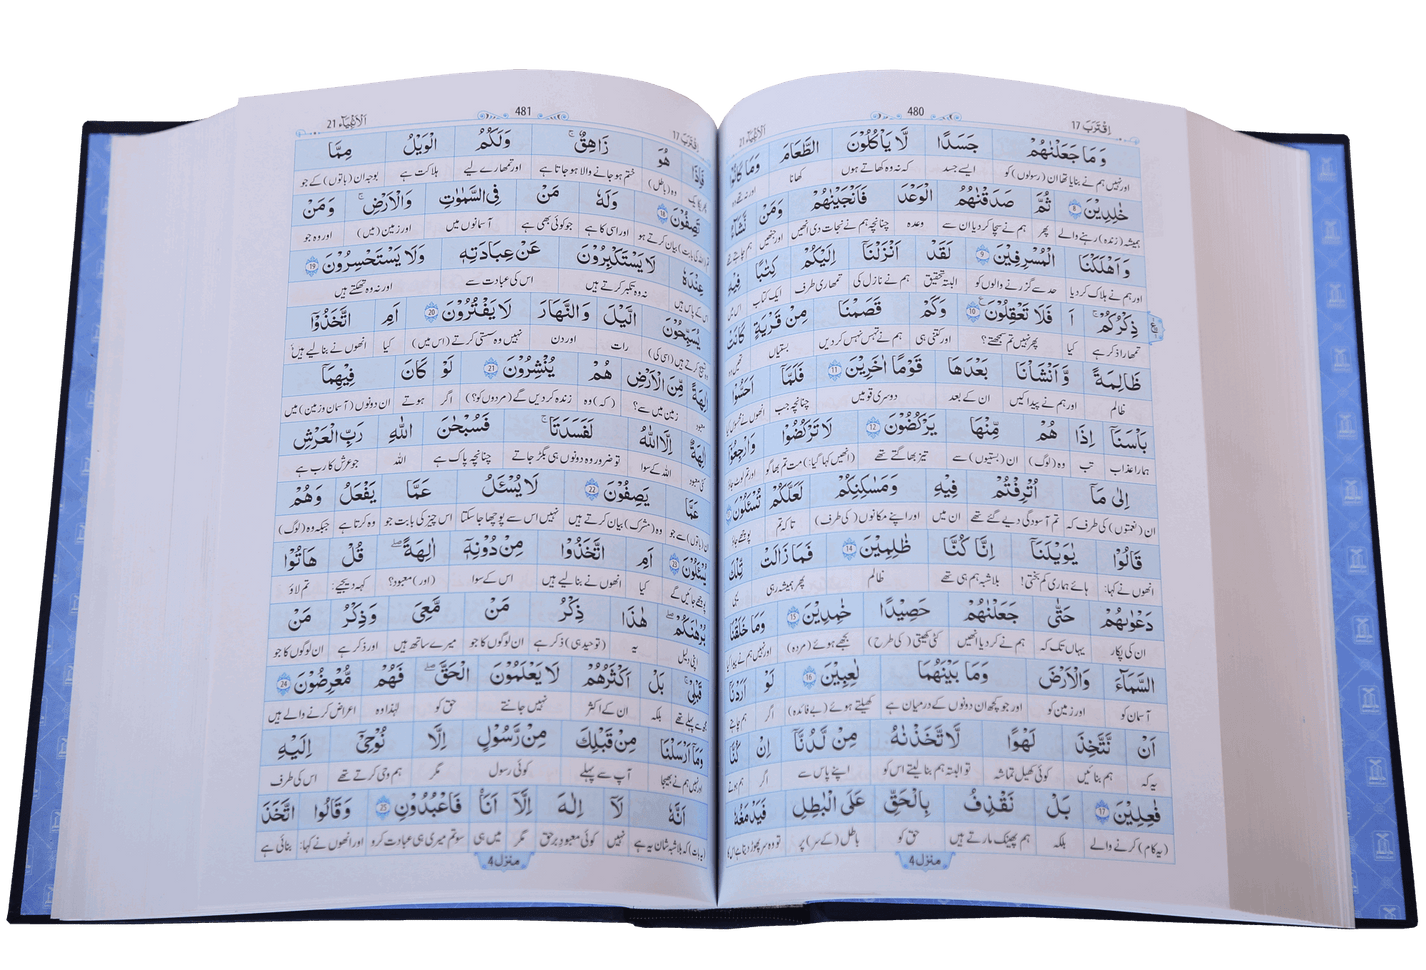 اقترب 17
480
الانبیاء 21
وَمَا جَعَلْنٰهُمْ جَسَدًا لَّا يَاْكُلُوْنَ الطَّعَامَ وَمَا كَانُوْا
اور نہیں ہم نے بنایا تھا ان (رسولوں) کو ایسے جسد کہ نہ وہ کھاتے ہوں کھانا اور نہ تھے وہ
خٰلِدِيْنَ 8 ثُمَّ صَدَقْنٰهُمُ الْوَعْدَ فَاَنْجَيْنٰهُمْ وَمَنْ نَّشَآءُ
ہمیشہ (زندہ) رہنے والے پھر ہم نے سچا کر دیا ان سے وعدہ چنانچہ ہم نے نجات دی انھیں اور جنھیں
وَاَهْلَكْنَا الْمُسْرِفِيْنَ 9 لَقَدْ اَنْزَلْنَآ اِلَيْكُمْ كِتٰبًا فِيْهِ
اور ہم نے ہلاک کر دیا حد سے گزرنے والوں کو البتہ تحقیق ہم نے نازل کی تمھاری طرف ایک کتاب
ذِكْرُكُمْ اَ فَلَا تَعْقِلُوْنَ 10 وَكَمْ قَصَمْنَا مِنْ قَرْيَةٍ كَانَتْ
تمھارا ذکر ہے کیا پھر نہیں تم سمجھتے؟ اور کتنی ہی ہم نے تہس نہس کر دیں بستیاں
ظَالِمَةً وَّاَنْشَاْنَا بَعْدَهَا قَوْمًا اٰخَرِيْنَ 11 فَلَمَّآ اَحَسُّوْا
ظالم اور ہم نے پیدا کیں ان کے بعد دوسری قومیں چنانچہ جب
بَاْسَنَآ اِذَا هُمْ مِّنْهَا يَرْكُضُوْنَ 12 لَا تَرْكُضُوْا وَارْجِعُوْٓا
ہمارا عذاب تب وہ (لوگ) ان (بستیوں) سے تیز بھاگتے تھے (انھیں کہا گیا:) مت تم بھاگو
اِلٰى مَآ اُتْرِفْتُمْ فِيْهِ وَمَسٰكِنِكُمْ لَعَلَّكُمْ تُسْـَٔلُوْنَ
ان (نعمتوں) کی طرف کہ تم آسودگی دیے گئے تھے ان میں اور اپنے مکانوں (کی طرف) تاکہ تم
قَالُوْا يٰوَيْلَنَآ اِنَّا كُنَّا ظٰلِمِيْنَ 14 فَمَا زَالَتْ تِّلْكَ
انھوں نے کہا: ہائے ہماری کم بختی! بلاشبہ ہم ہی تھے ظالم پھر ہمیشہ رہی یہی
دَعْوٰىهُمْ حَتّٰى جَعَلْنٰهُمْ حَصِيْدًا خٰمِدِيْنَ 15 وَمَا خَلَقْنَا
ان کی پکار یہاں تک کہ ہم نے کر دیا انھیں کٹی کھیتی (کی طرح) بجھے ہوئے (مردہ)
السَّمَآءَ وَالْاَرْضَ وَمَا بَيْنَهُمَا لٰعِبِيْنَ 16 لَوْ اَرَدْنَآ
آسمان کو اور زمین کو اور جو کچھ ان دونوں کے درمیان ہے کھیلتے ہوئے (بے فائدہ) اگر ہم چاہتے
اَنْ نَّتَّخِذَ لَهْوًا لَّاتَّخَذْنٰهُ مِنْ لَّدُنَّآ اِنْ كُنَّا
یہ کہ ہم بنائیں کوئی کھیل تماشہ تو البتہ ہم بنا لیتے اس کو اپنے پاس سے اگر ہم ہوتے
فٰعِلِيْنَ 17 بَلْ نَقْذِفُ بِالْحَقِّ عَلَى الْبَاطِلِ فَيَدْمَغُهٗ
(یہ کام) کرنے والے بلکہ ہم پھینک مارتے ہیں حق کو باطل (کے سر) پر
منزل 4
اقترب 17
481
الانبیاء 21
فَاِذَا هُوَ زَاهِقٌ وَلَكُمُ الْوَيْلُ مِمَّا
وہ (باطل) ختم ہو جانے والا ہو جاتا ہے اور تمھارے لیے ہلاکت ہے بوجہ ان (باتوں) کے جو
تَصِفُوْنَ 18 وَلَهٗ مَنْ فِي السَّمٰوٰتِ وَالْاَرْضِ وَمَنْ
بیان کرتے ہو اور اسی کا ہے جو کوئی بھی ہے آسمانوں میں اور زمین (میں) اور وہ جو
عِنْدَهٗ لَا يَسْتَكْبِرُوْنَ عَنْ عِبَادَتِهٖ وَلَا يَسْتَحْسِرُوْنَ 19
اس کے پاس ہیں نہ وہ تکبر کرتے ہیں اس کی عبادت سے اور نہ وہ تھکتے ہیں
يُسَبِّحُوْنَ الَّيْلَ وَالنَّهَارَ لَا يَفْتُرُوْنَ 20 اَمِ اتَّخَذُوْٓا
رات اور دن نہیں وہ سستی کرتے (اس میں) کیا انھوں نے بنا لیے ہیں
اٰلِهَةً مِّنَ الْاَرْضِ هُمْ يُنْشِرُوْنَ 21 لَوْ كَانَ فِيْهِمَآ
معبود زمین میں سے؟ (کہ) وہ زندہ کر دیں گے (مردوں کو؟) اگر ہوتے ان دونوں (آسمان و زمین) میں
اٰلِهَةٌ اِلَّا اللّٰهُ لَفَسَدَتَا فَسُبْحٰنَ اللّٰهِ رَبِّ الْعَرْشِ
اللہ کے سوا تو ضرور وہ دونوں ہی بگڑ جاتے چنانچہ پاک ہے اللہ جو عرش کا رب ہے
عَمَّا يَصِفُوْنَ 22 لَا يُسْـَٔلُ عَمَّا يَفْعَلُ وَهُمْ
وہ (مشرک) بیان کرتے ہیں نہیں اس سے پوچھا جا سکتا اس چیز کی بابت جو وہ کرتا ہے جبکہ وہ (لوگ)
يُسْـَٔلُوْنَ 23 اَمِ اتَّخَذُوْا مِنْ دُوْنِهٖٓ اٰلِهَةً قُلْ هَاتُوْا
پوچھے جائیں گے کیا انھوں نے بنا لیے ہیں اس کے سوا (اور) معبود؟ کہہ دیجیے: تم لاؤ
بُرْهَانَكُمْ هٰذَا ذِكْرُ مَنْ مَّعِيَ وَذِكْرُ مَنْ
اپنی دلیل یہ (توحید ہی) ذکر ہے ان لوگوں کا جو میرے ساتھ ہیں اور ذکر ہے ان لوگوں کا جو
قَبْلِيْ بَلْ اَكْثَرُهُمْ لَا يَعْلَمُوْنَ الْحَقَّ فَهُمْ مُّعْرِضُوْنَ 24
مجھ سے پہلے تھے بلکہ ان کے اکثر نہیں جانتے حق کو لہٰذا وہ اعراض کرنے والے ہیں
وَمَآ اَرْسَلْنَا مِنْ قَبْلِكَ مِنْ رَّسُوْلٍ اِلَّا نُوْحِيْٓ اِلَيْهِ
اور نہیں ہم نے بھیجا آپ سے پہلے کوئی رسول مگر ہم وحی کرتے تھے اس کی طرف
اَنَّهٗ لَآ اِلٰهَ اِلَّآ اَنَا فَاعْبُدُوْنِ 25 وَقَالُوا اتَّخَذَ
کہ بلاشبہ شان یہ ہے نہیں کوئی معبود برحق مگر میں ہی سو تم میری ہی عبادت کرو اور انھوں نے کہا: بنائی ہے
منزل 4